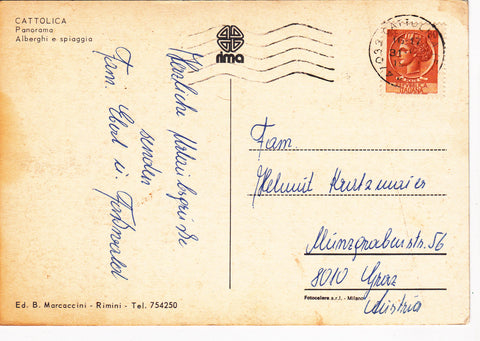 CATTOLICA
Panorama
Alberghi e spiaggia
rima
Herzliche Urlaubsgrüße
senden
Fam. Ebert u.
Fam.
Helmut
Münzgrabenstr. 56
8010 Graz
Austria
Ed. B. Marcaccini - Rimini - Tel. 754250
Fotocelere s.r.l. - Milano